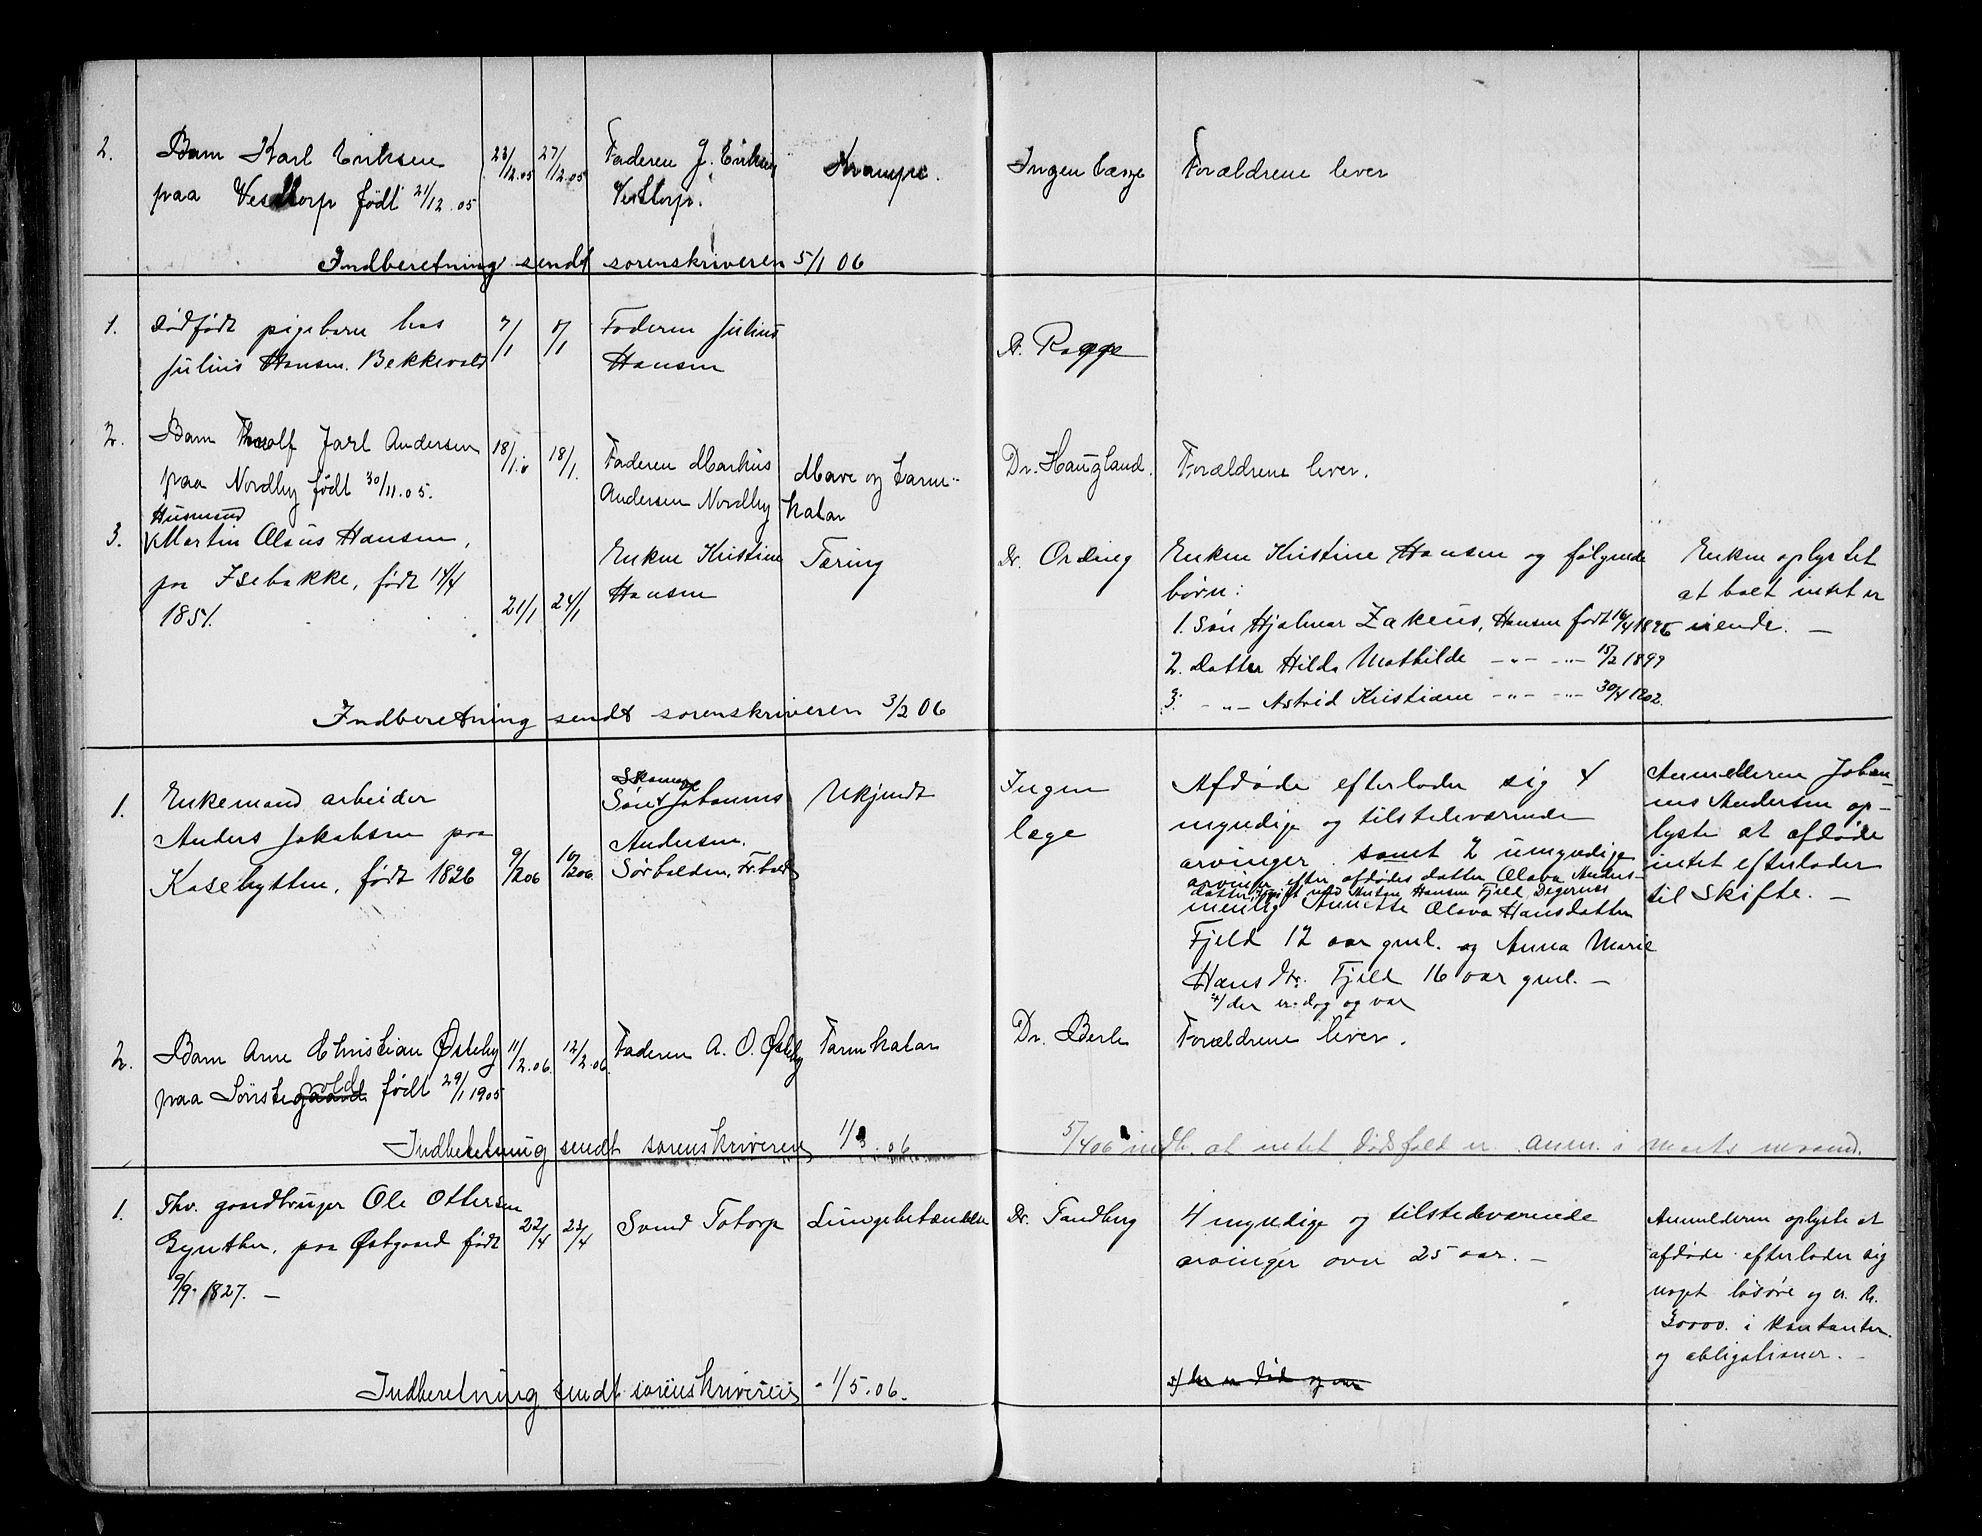 2.
Barn Karl Eriksen
paa Vesttorp født 21/12.05
23/12.05
27/12.05
Faderen J. Eriksen
Vesttorp.
Krampe.
Ingen Læge
Forældrene lever
Indberetning sendt sorenskriveren 5/1 06
1.
Dødfødt pigebarn hos
Julius Hansen. Bekkevold
7/1
8/1
Faderen Julius
Hansen
Dr. Rogge
2.
Barn Thoralf Jarl Andersen
paa Nordby født 30/11.05.
18/1.
18/1.
Faderen Markus
Andersen Nordby
Mave og Tarm-
katar
Dr. Haugland.
Forældrene lever.
3.
Husmand
Martin Olaus Hansen,
paa Isebakke, født 14/4
1851.
21/1
24/1
Enken Kristine
Hansen
Tæring
Dr. Ording
Enken Kristine Hansen og følgende
børn:
1. Søn Hjalmar Zakeus, Hansen født 16/4 1896
2. Datter Hilda Mathilde –„– –„– 15/2 1899
3. –„– Astrid Kristiane –„– –„– 30/4 1902.
Enken oplystet
at boet intet er
eiende. –
Indberetning sendt sorenskriveren 3/2 06
1.
Enkemand, arbeider
Anders Jakobsen paa
Kasehytten, født 1826
9/2 06
10/2 06.
Sønn Johannes
Andersen.
Sørhalden, Fr.hald
Ukjendt
Ingen
læge
Afdøde efterlader sig 4
myndige og tilstedeværende
arvinger. samt 2 umyndige
arvinger efter afdødes datter Olava Anders-
datter, gift med Anton Hansen Fjeld, Degernes
menlig Annette Olava Hansdatter
Fjeld 12 aar gml. og Anna Marie
Hans dtr. Fjeld 16 aar gml. –
x/ der er dog og var
Anmelderen Johan-
nes Andersen op-
lyste at afdøde
intet efterlader
til Skifte. –
2.
Barn Arne Christian Østeby
paa Sørstegaard vold født 29/1 1905
11/2.06.
12/2.06.
Faderen A. O. Østeby
Tarmkatar
Dr. Berle
Forældrene lever.
Indberetning sendt sorenskriveren 1/3.06
5/4 06 indb. at intet dødsfald er anm. i Marts maaned.
1.
Fhv. gaardbruger Ole Ottersen
Gynther, paa Østgaard født
9/9.1827. –
22/4
23/4
Svend Totorp
Lungebetændelse
Dr. Tandberg
4 myndige og tilstedeværende
arvinger over 25 aar. –
Anmelderen oplyste at
afdøde efterlader sig
noget løsøre og ca. Kr.
30000. i kontanter
og obligationer. –
Indberetning sendt sorenskriveren – 1/5.06.